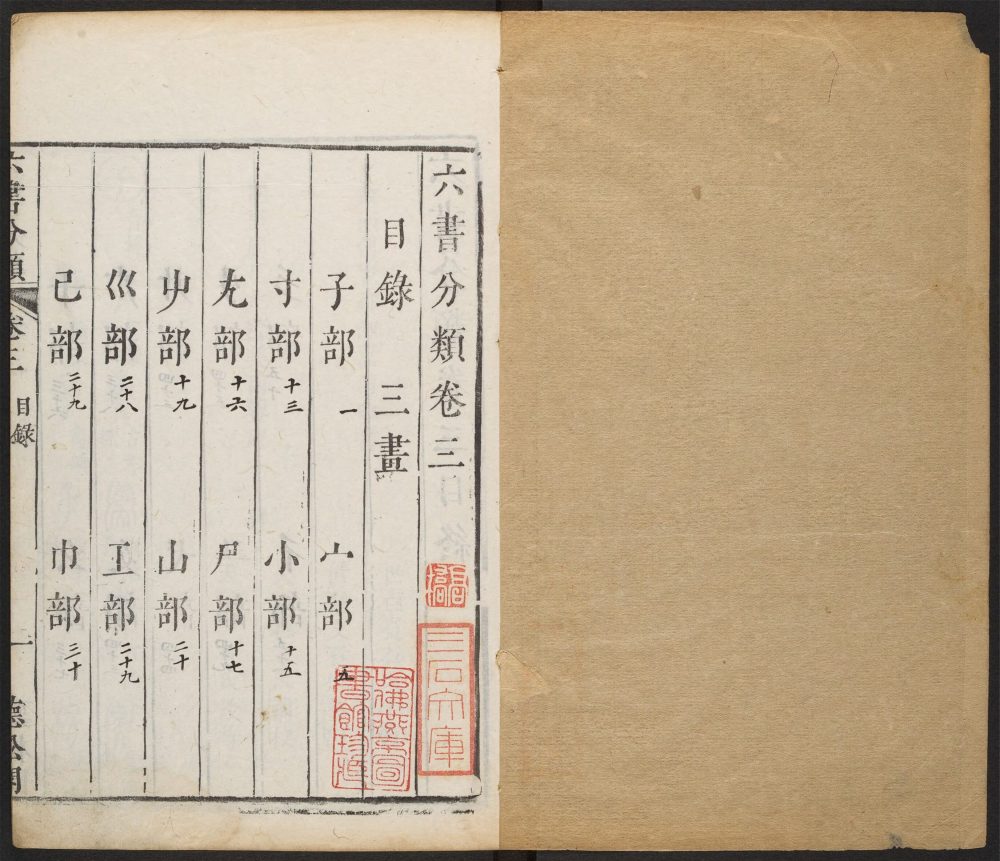 六書分類卷三
目錄 三畫
子部 一 宀部 五
寸部 十三 小部 十五
尢部 十六 尸部 十七
屮部 十九 山部 二十
巛部 二十八 工部 二十九
己部 二十九 巾部 三十
六書分類 卷三 目錄 一
三石文庫
哈佛燕京圖書館珍藏